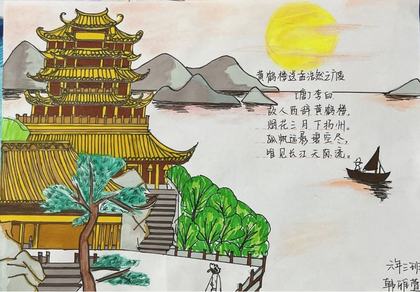 黄鹤楼送孟浩然之广陵
[唐] 李白
故人西辞黄鹤楼,
烟花三月下扬州。
孤帆远影碧空尽,
唯见长江天际流。
三班
韩